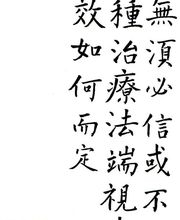 無須必信或不
種治療法端視
效如何而定